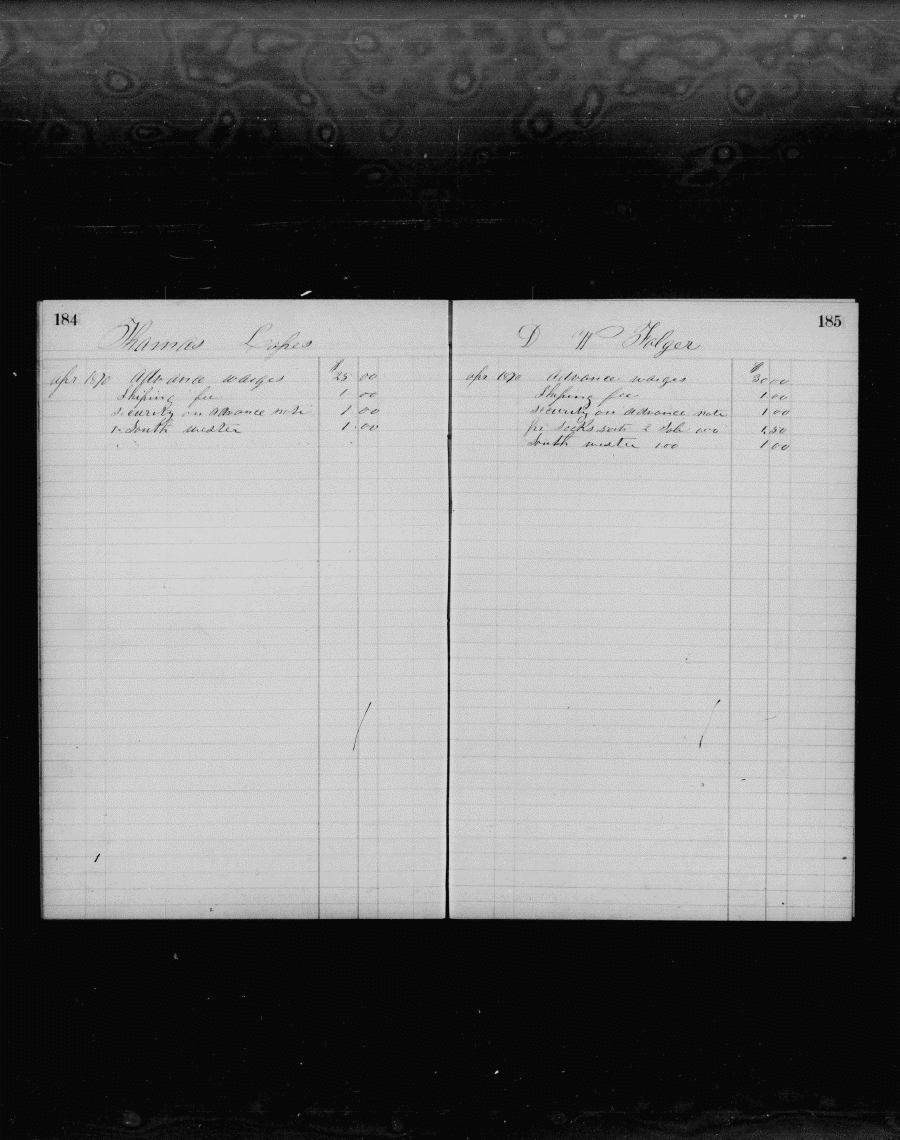 184
Thamas Lopes
apr 1870 Advance warges $ 25 00
Shiping fee 1 00
security on advance note 1 00
1 South wester 1 00
185
D W Folger
apr 1870 Advance warges $ 30 00
Shiping fee 1 00
security on advance note 1 00
pr socks 1 50
South wester 100 1 00